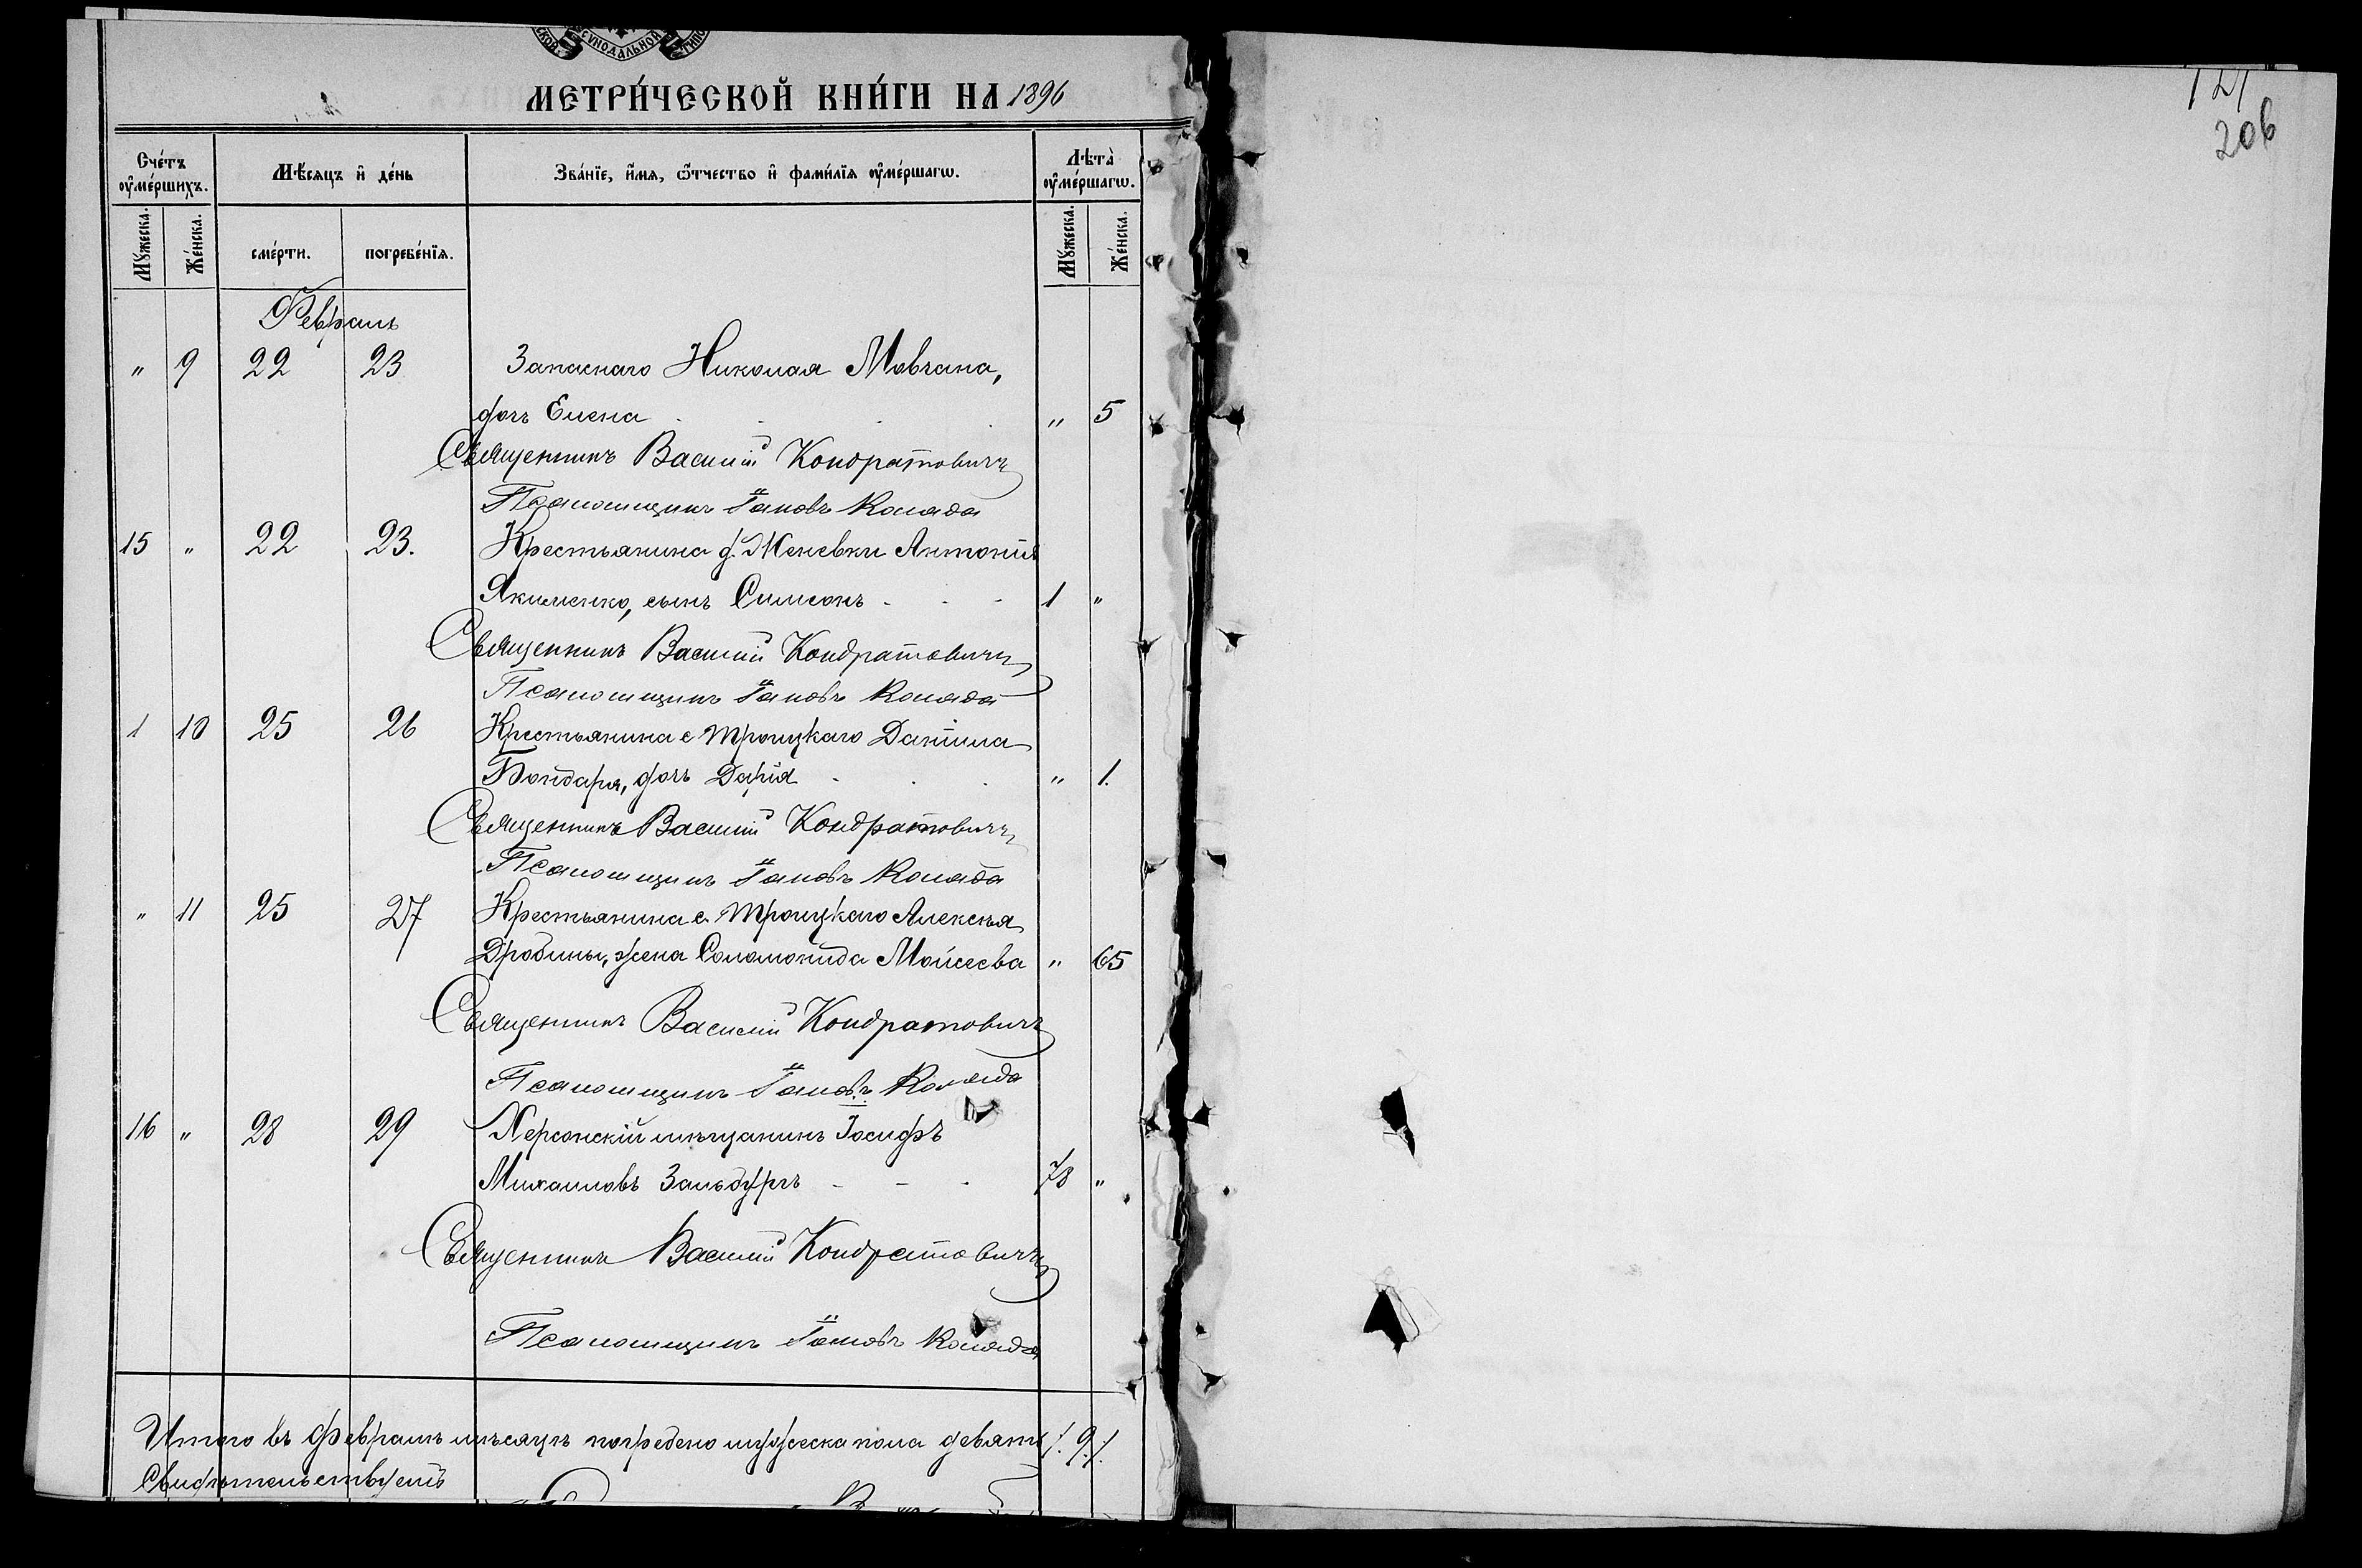 СѴНОДАЛЬНОЙ
МЕТРИ́ЧЕСКОЙ КНИ́ГИ НА 1896
Сче́тъ оу҆ме́ршихъ.
Мѣ́сяцъ и҆ де́нь
Зва́нїе, и҆́мя, ѻ҆́тчество и҆ фами́лїя оу҆ме́ршагѡ.
Лѣта̀ оу҆ме́ршагѡ.
Мꙋ́жеска. Же́нска. сме́рти. погребе́нїя. Мꙋ́жеска. Же́нска.
Февраль
" 9 22 23 Запаснаго Николая Мовчана,
дочь Елена " 5
Священникъ Василій Кондратовичъ
Псаломщикъ Іаковъ Коляда
15 " 22 23. Крестьянина д. Женевки Антонія
Якименко, сынъ Симеонъ - - - 1 "
Священникъ Василій Кондратовичъ
Псаломщикъ Іаковъ Коляда
1 10 25 26 Крестьянина с Троицкаго Даніила
Бондаря, дочь Дарія " 1.
Священникъ Василій Кондратовичъ
Псаломщикъ Іаковъ Коляда
" 11 25 27 Крестьянина с. Троицкаго Алексѣя
Дробины, жена Соломонида Моисеева " 65
Священникъ Василій Кондратовичъ
Псаломщикъ Іаковъ Коляда
16 " 28 29 Херсонскій мѣщанинъ Іосифъ
Михаиловъ Зальбургъ - - - 78 "
Священникъ Василій Кондратовичъ
Псаломщикъ Іаковъ Коляда
Итого въ февралѣ мѣсяцѣ погребено мужеска пола девять /. 9 ./.
Свидѣтельствуемъ
206